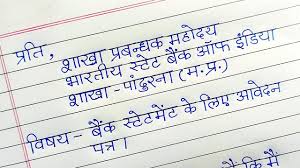 प्रति,
शाखा प्रबन्धक महोदय
भारतीय स्टेट बैंक ऑफ इंडिया
शाखा - पांढुरना (म.प्र.)
विषय - बैंक स्टेटमेंट के लिए आवेदन
पत्र।
कि मैं